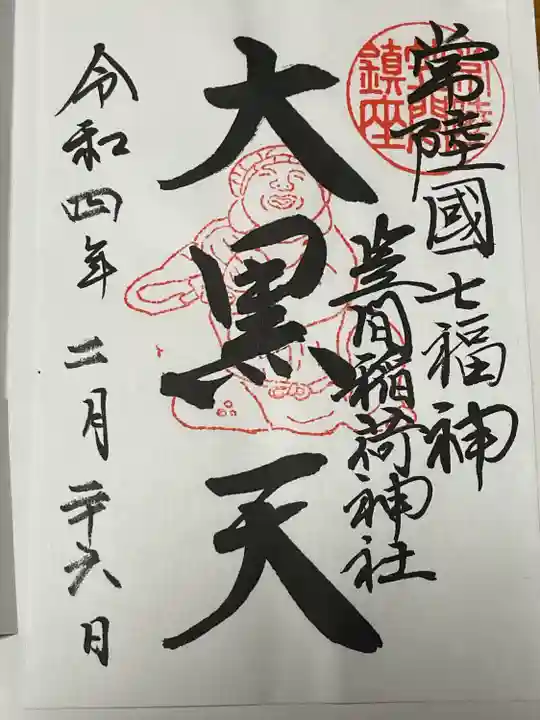 常陸國七福神
笠間稲荷神社
大黒天
令和四年二月二十六日
鎮座